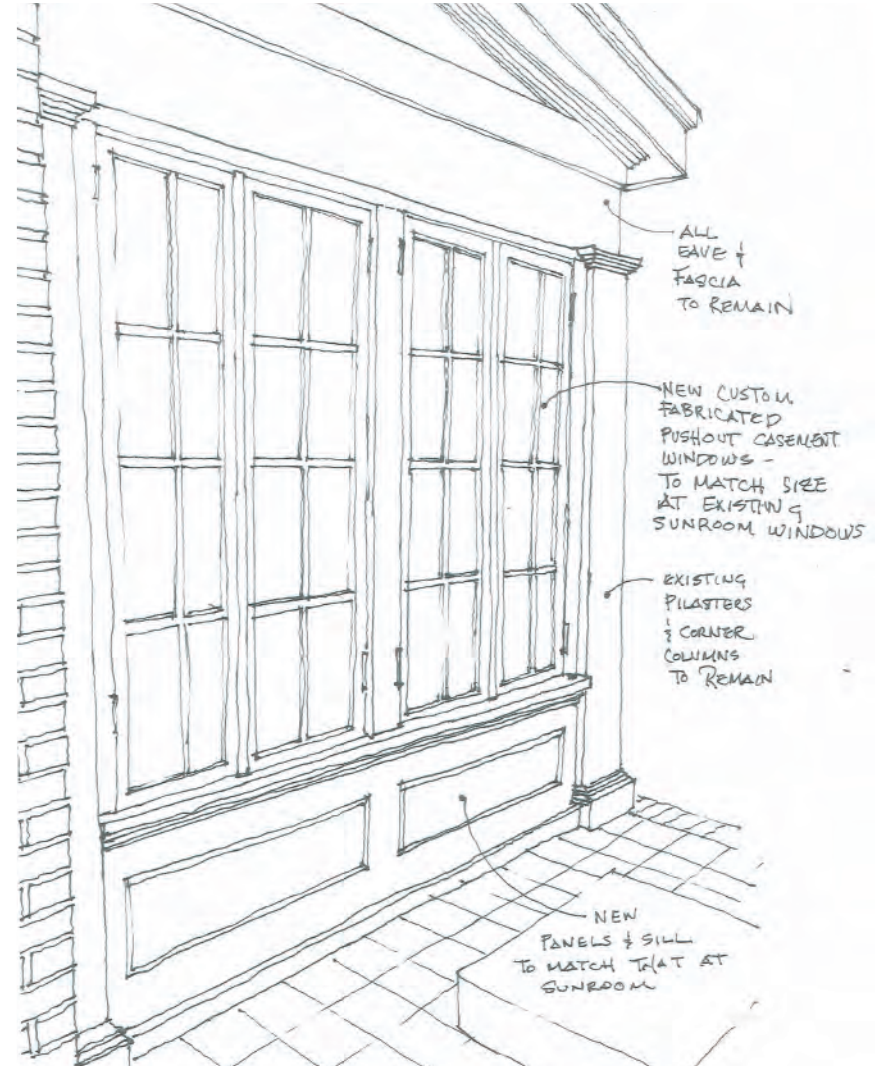 ALL
EAVE &
FASCIA
TO REMAIN
NEW CUSTOM
FABRICATED
PUSHOUT CASEMENT
WINDOWS -
TO MATCH SIZE
AT EXISTING
SUNROOM WINDOWS
EXISTING
PILASTERS
& CORNER
COLUMNS
TO REMAIN
NEW
PANELS & SILL
TO MATCH THAT AT
SUNROOM